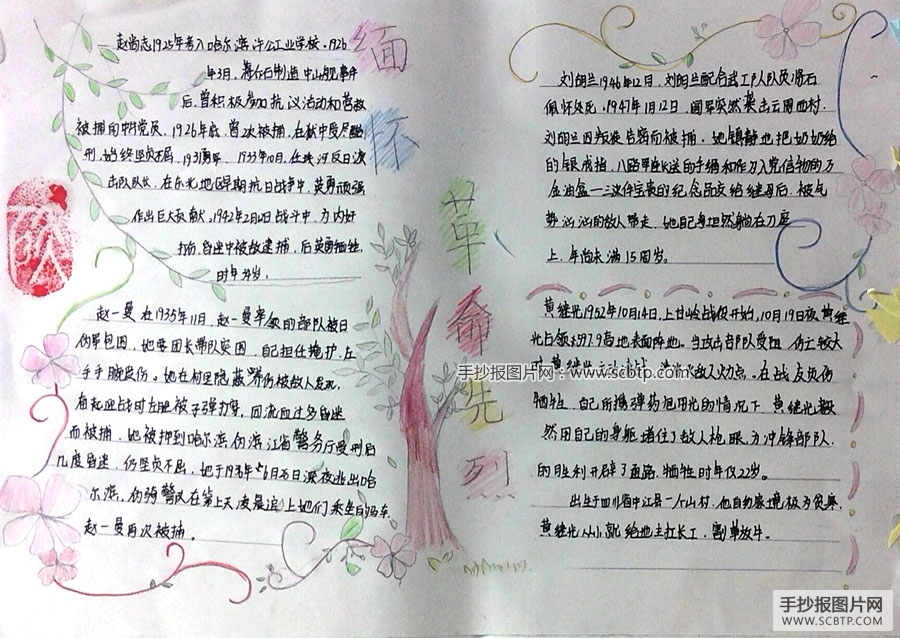 缅怀
革命先烈
赵尚志1925年考入哈尔滨许公工业学校.1926
年3月,蒋介石制造中山舰事件
后,曾积极参加抗议活动和营救
被捕的共产党员,1926年底,曾次被捕,在狱中受尽酷
刑,始终坚贞不屈,1933年10月,任珠河反日游
击队队长,在东北地区早期抗日战争中,英勇顽强
作出巨大贡献,1942年2月12日战斗中,
时年34岁,
赵一曼在1935年11月,赵一曼率领的部队被日
伪军包围,她要团长带队突围,自己担任掩护,左
手手腕受伤.她在村里隐蔽养伤被敌人发现,
在起迎战时左腿被子弹打穿,因流血过多昏迷
而被捕.她被押到哈尔滨,伪滨江省警务厅受刑后
几度昏迷,仍坚贞不屈,她于1936年6月28日深夜逃出哈
尔滨,
赵一曼再次被捕.
刘胡兰1946年12月,刘胡兰配合武工队队员将石
佩怀处死.1947年1月12日,国军突然袭击云周西村.
刘胡兰因叛徒告密而被捕.她镇静地把奶奶给
的银戒指,八路军连长送的手绢和作为入党信物的万
金油盒一三次件宝贵的纪念品交给继母后,被气
势汹汹的敌人带走,她自己坦然躺在刀座
上,年尚未满15周岁.
黄继光1952年10月14日,上甘岭战役开始,10月19日夜黄继
光占领597.9高地表面阵地.当攻击部队受阻,伤亡较大
敌人火力点.在战友负伤
牺牲,自己所携弹药也用光的情况下,黄继光毅
然用自己的身躯堵住了敌人枪眼,为冲锋部队
的胜利开辟了通路,牺牲时年仅22岁.
出生于四川省中江县一个山村,他自幼家境极为贫寒,
黄继光从小就给地主扛长工、割草放牛.
手抄报图片网:www.scbtp.com
手抄报图片网
WWW.SCBTP.COM